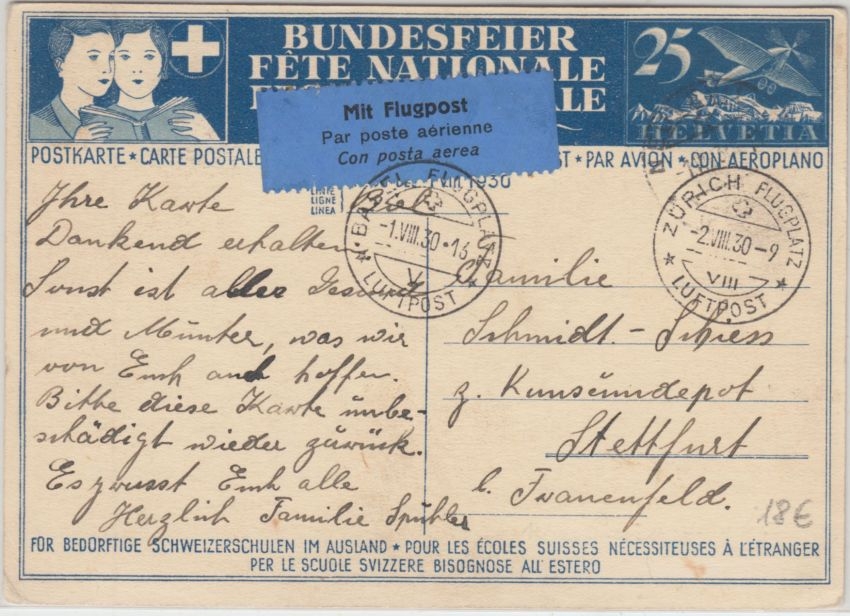 BUNDESFEIER
FÊTE NATIONALE
25
HELVETIA
Mit Flugpost
Par poste aérienne
Con posta aerea
POSTKARTE ★ CARTE POSTALE
★ PAR AVION ★ CON AEROPLANO
VIII 1930
LIGNE
LINEA
★ BASEL FLUGPLATZ ★
-1.VIII.30-16
V
LUFTPOST
★ ZÜRICH FLUGPLATZ ★
-2.VIII.30-9
VIII
LUFTPOST
Ihre Karte
Dankend erhalten
Sonst ist alles Gesund
und Munter, was wir
von Euch auch hoffen.
Bitte diese Karte unbe-
schädigt wieder zurück.
Es grüsst Euch alle
Herzlich Familie Spühler
Familie
Schmidt-Schiess
z. Konsumdepot
Stettfurt
b. Frauenfeld.
18€
FÜR BEDÜRFTIGE SCHWEIZERSCHULEN IM AUSLAND ★ POUR LES ÉCOLES SUISSES NÉCESSITEUSES À L'ÉTRANGER
PER LE SCUOLE SVIZZERE BISOGNOSE ALL'ESTERO